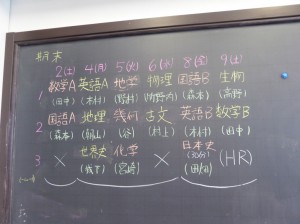 期末
2(土) 4(月) 5(火) 6(水) 8(金) 9(土)
1 数学A 英語A 地学 物理 国語B 生物
(田中) (木村) (野村) (森本) (高野)
2 国語A 地理 幾何 古文 英語B 数学B
(森本) (谷) (村上) (木村) (田中)
3 × 世界史 化学 × 日本史 (HR)
(宮崎) (30分)
(田畑)